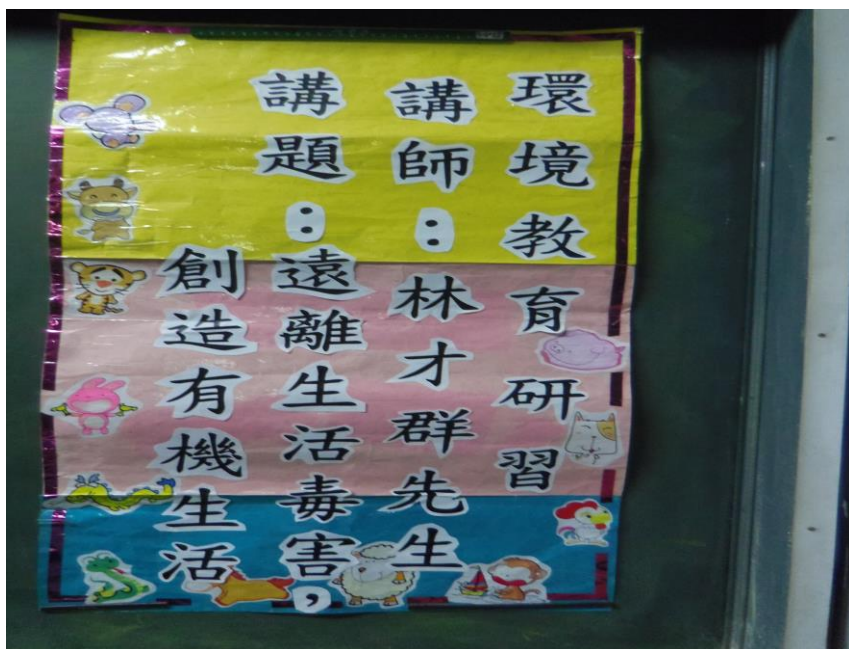 環境教育研習
講師：林才群先生
講題：遠離生活毒害，
創造有機生活